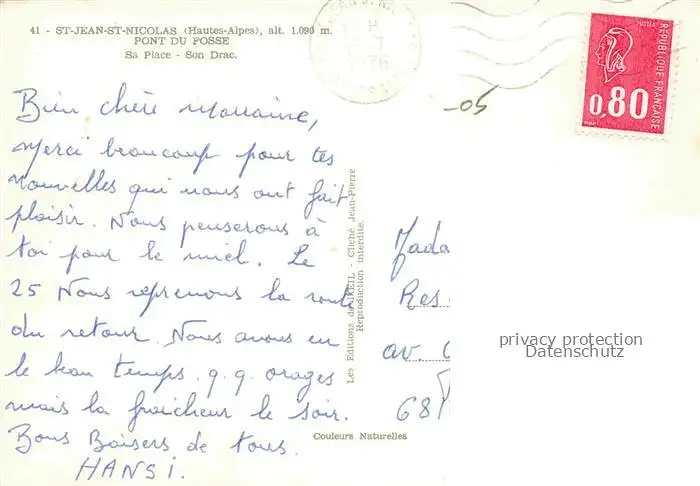 41 - ST-JEAN-ST-NICOLAS (Hautes-Alpes), alt. 1.090 m.
PONT DU FOSSE
Sa Place - Son Drac.
Bien chère marraine,
Merci beaucoup pour tes
nouvelles qui nous ont fait
plaisir. Nous penserons à
toi pour le miel. Le
25 Nous reprenons la route
du retour. Nous avons eu
le beau temps. q.q. orages
mais la fraicheur le soir.
Bons Baisers de tous.
HANSI.
Les Editions de - Cliché Jean-Pierre
Reproduction interdite.
Couleurs Naturelles
0,80
REPUBLIQUE FRANÇAISE
05
Mada
Res
av.
68
privacy protection
Datenschutz